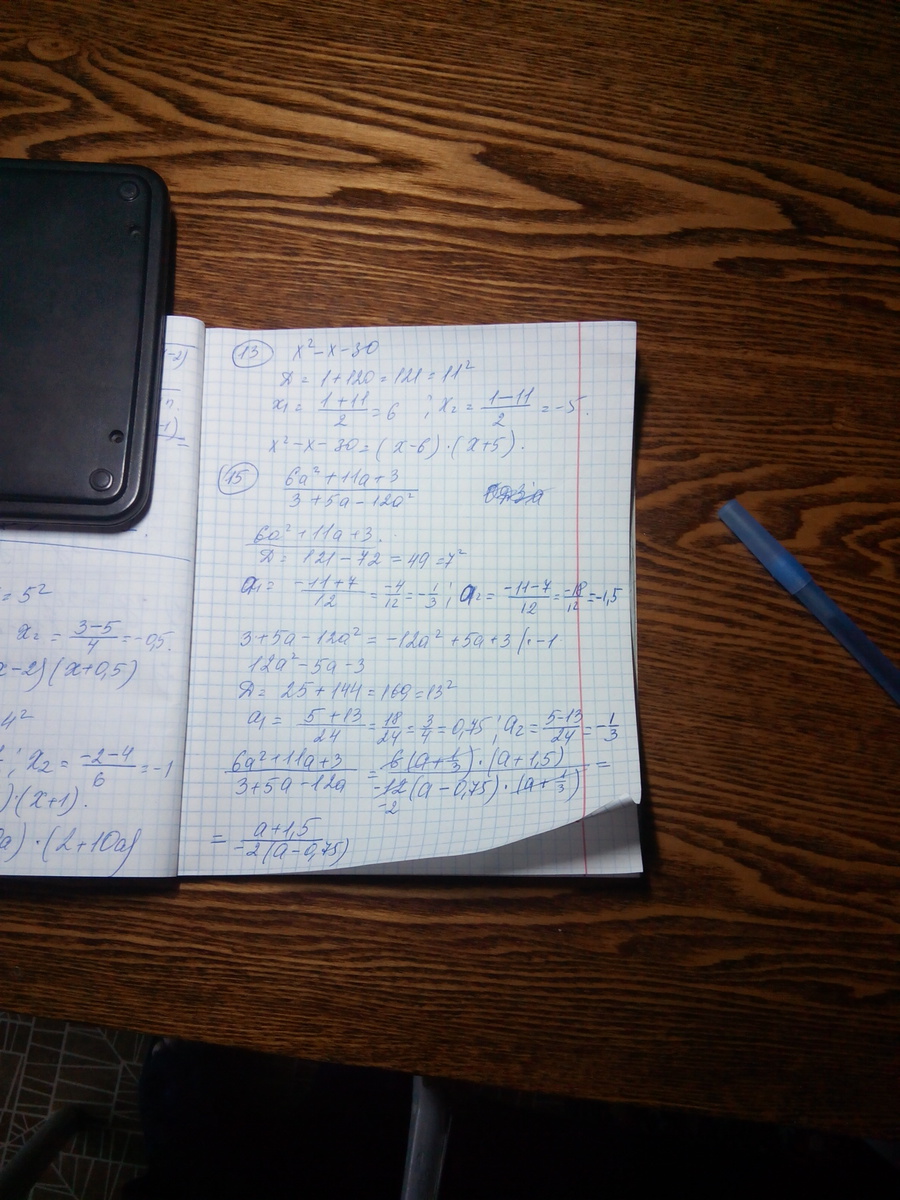 -2)
-1)
=
= 5²
x₂ = (3-5)/4 = -0,5.
x-2)(x+0,5)
4²
; x₂ = (-2-4)/6 = -1
)·(x+1).
a)·(2+10a)
13 x²-x-30
D = 1+120 = 121 = 11²
x₁ = (1+11)/2 = 6 ; x₂ = (1-11)/2 = -5.
x²-x-30 = (x-6)·(x+5).
15 (6a²+11a+3)/(3+5a-12a²)
6a²+11a+3.
D = 121-72 = 49 = 7²
a₁ = (-11+7)/12 = -4/12 = -1/3 ; a₂ = (-11-7)/12 = -18/12 = -1,5
3+5a-12a² = -12a²+5a+3 |·-1
12a²-5a-3
D = 25+144 = 169 = 13²
a₁ = (5+13)/24 = 18/24 = 3/4 = 0,75 ; a₂ = (5-13)/24 = -1/3
(6a²+11a+3)/(3+5a-12a) = 6(a+1/3)·(a+1,5)/(-12(a-0,75)·(a+1/3)) =
-2
= (a+1,5)/(-2(a-0,75))